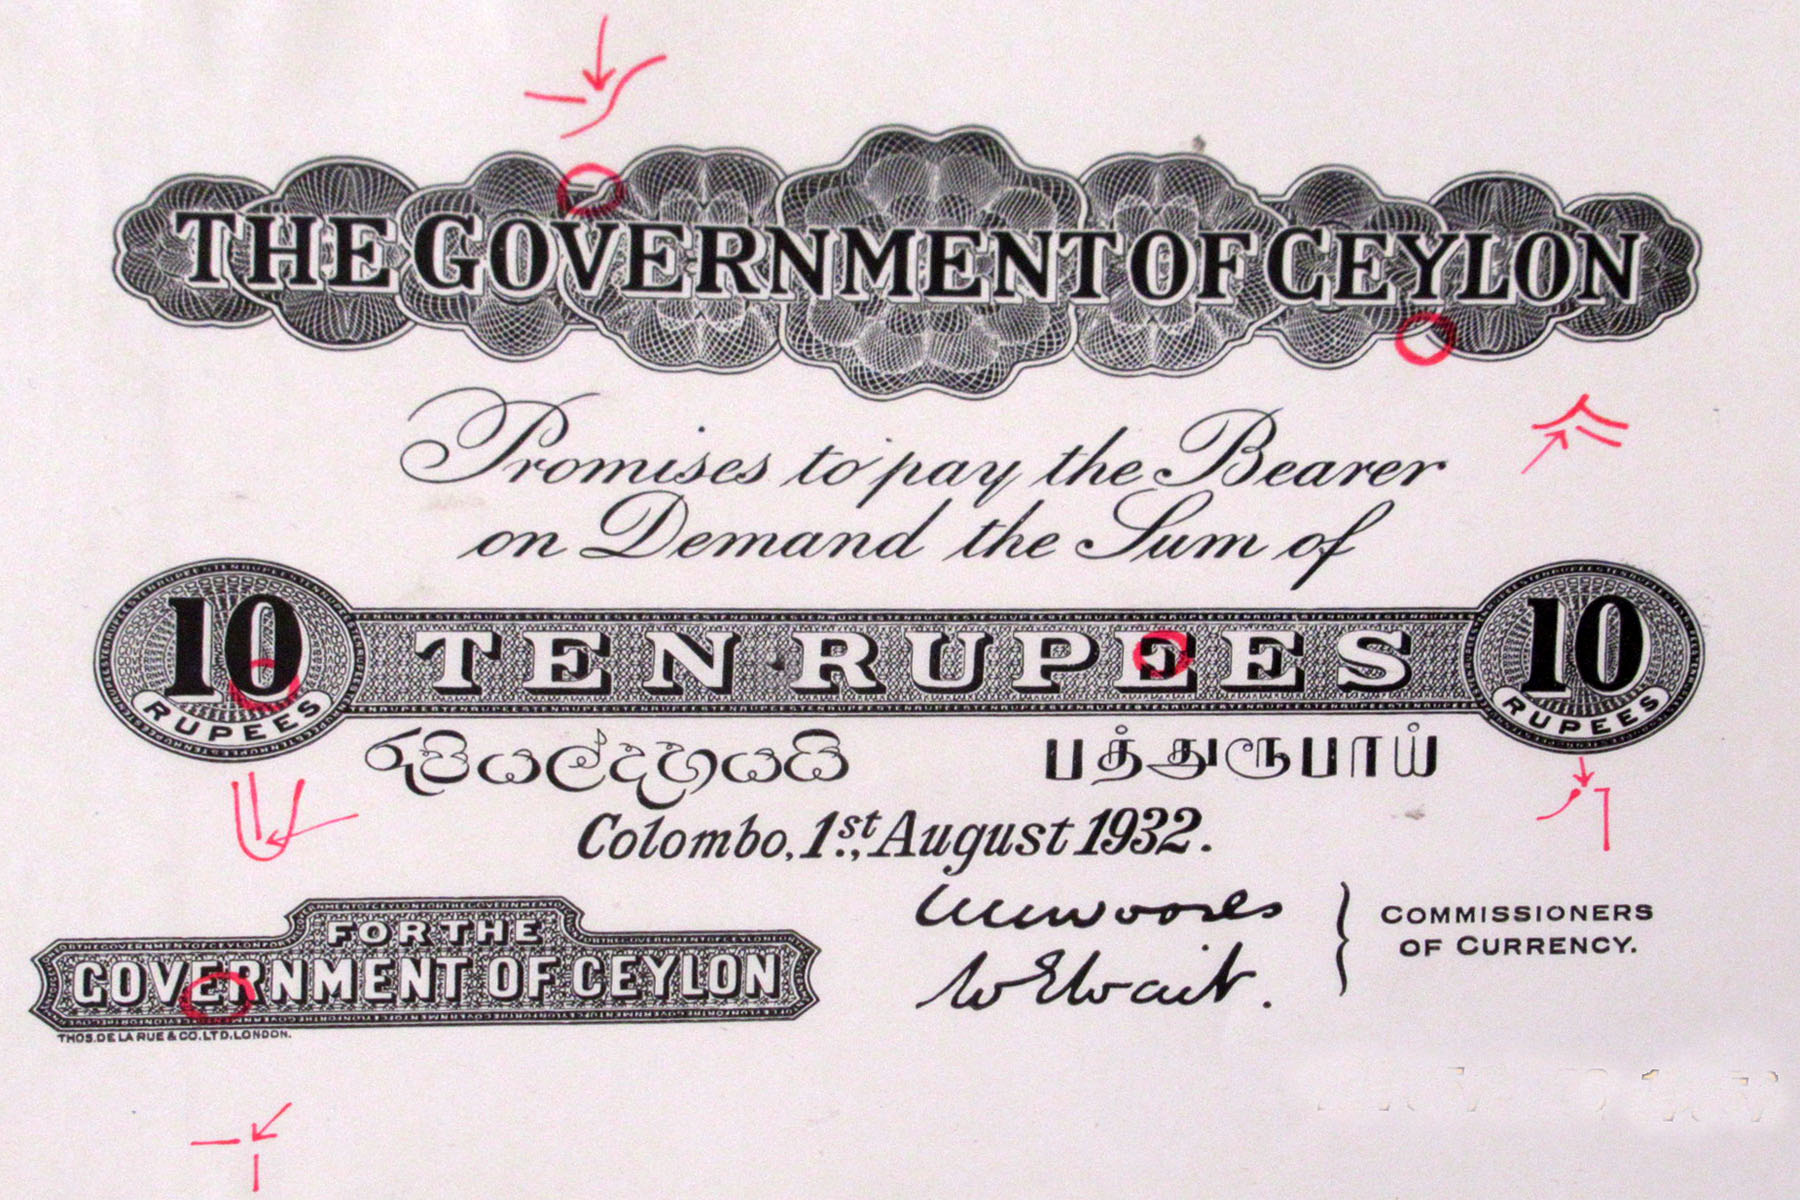 THE GOVERNMENT OF CEYLON
Promises to pay the Bearer
on Demand the Sum of
10 TEN RUPEES 10
RUPEES RUPEES
රුපියල්දහයයි பத்துரூபாய்
Colombo, 1st., August 1932.
COMMISSIONERS
OF CURRENCY.
W E Wait.
FOR THE
GOVERNMENT OF CEYLON
THOS. DE LA RUE & CO. LTD. LONDON.